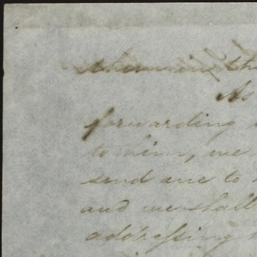 As
forwarding
to him, we
send one to
and we shall
addressing